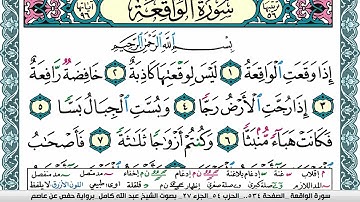 سورة الواقعة
بِسْمِ ٱللَّهِ ٱلرَّحْمَٰنِ ٱلرَّحِيمِ
إِذَا وَقَعَتِ ٱلْوَاقِعَةُ ١ لَيْسَ لِوَقْعَتِهَا كَاذِبَةٌ ٢ خَافِضَةٌ رَّافِعَةٌ
٣ إِذَا رُجَّتِ ٱلْأَرْضُ رَجًّا ٤ وَبُسَّتِ ٱلْجِبَالُ بَسًّا ٥
فَكَانَتْ هَبَآءً مُّنۢبَثًّا ٦ وَكُنتُمْ أَزْوَٰجًا ثَلَٰثَةً ٧ فَأَصْحَٰبُ
سورة الواقعة . الصفحة ٥٣٤... الحزب ٥٤ .الجزء ٢٧ . بصوت الشيخ عبد الله كامل. برواية حفص عن عاصم